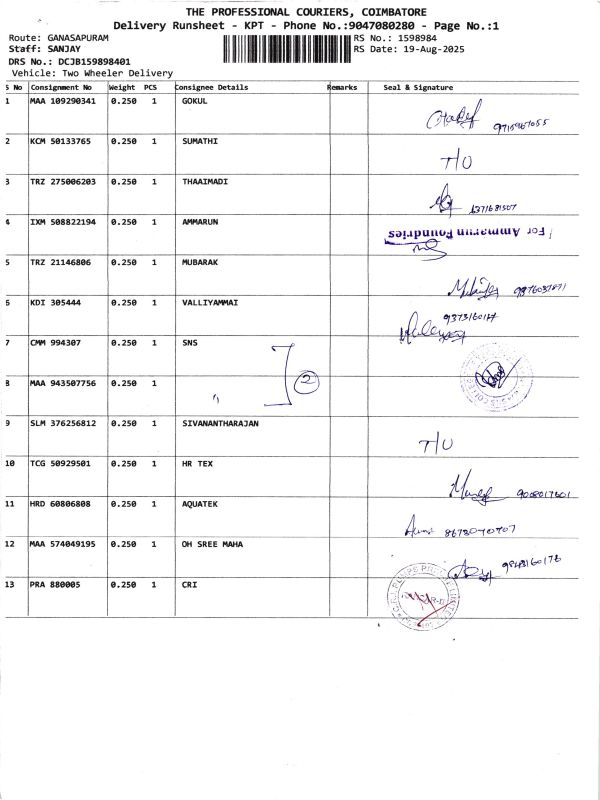 THE PROFESSIONAL COURIERS, COIMBATORE
Delivery Runsheet - KPT - Phone No.:9047080280 - Page No.:1
Route: GANASAPURAM RS No.: 1598984
Staff: SANJAY RS Date: 19-Aug-2025
DRS No.: DCJB159898401
Vehicle: Two Wheeler Delivery
S No Consignment No Weight PCS Consignee Details Remarks Seal & Signature
1 MAA 109290341 0.250 1 GOKUL
2 KCM 50133765 0.250 1 SUMATHI T/U
3 TRZ 275006203 0.250 1 THAAIMADI
4 IXM 508822194 0.250 1 AMMARUN For Ammarun Foundries
5 TRZ 21146806 0.250 1 MUBARAK
6 KDI 305444 0.250 1 VALLIYAMMAI
7 CMM 994307 0.250 1 SNS
8 MAA 943507756 0.250 1 " 2
9 SLM 376256812 0.250 1 SIVANANTHARAJAN T/U
10 TCG 50929501 0.250 1 HR TEX
11 HRD 60806808 0.250 1 AQUATEK
12 MAA 574049195 0.250 1 OH SREE MAHA
13 PRA 880005 0.250 1 CRI